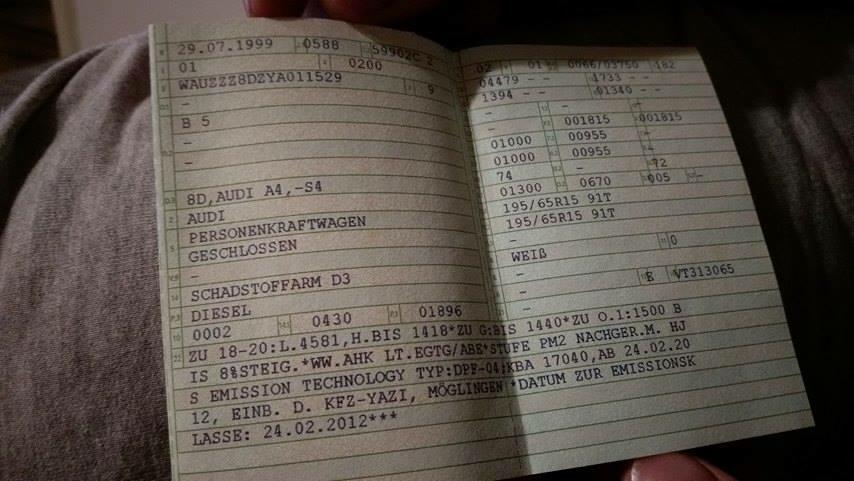 29.07.1999 0588 59902C 2
01 0200
WAUZZZ8DZYA011529 9
-
B 5
-
-
8D,AUDI A4,-S4
AUDI
PERSONENKRAFTWAGEN
GESCHLOSSEN
-
SCHADSTOFFARM D3
DIESEL
0002 0430 01896
02 01 0066/03750 182
04479 - - 1733 - -
1394 - - 01340 - -
- - -
- 001815 001815
01000 00955 -
01000 00955 -
74 - 72
01300 0670 005 -
195/65R15 91T
195/65R15 91T
-
-
WEIß 0
-
- E VT313065
-
ZU 18-20:L.4581,H.BIS 1418*ZU G:BIS 1440*ZU O.1:1500 B
IS 8%STEIG.*WW.AHK LT.EGTG/ABE*STUFE PM2 NACHGER.M. HJ
S EMISSION TECHNOLOGY TYP:DPF-04;KBA 17040,AB 24.02.20
12, EINB. D. KFZ-YAZI, MÖGLINGEN*DATUM ZUR EMISSIONSK
LASSE: 24.02.2012***